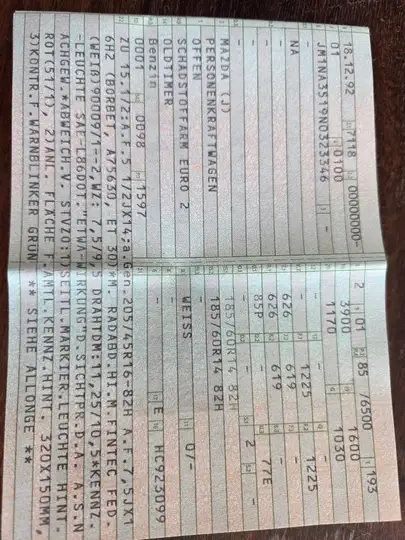 18.12.92 7118 000000000-
01 0100
JM1NA3519N0323346 -
NA -
-
MAZDA (J)
PERSONENKRAFTWAGEN
OFFEN
SCHADSTOFFARM EURO 2
OLDTIMER
Benzin
0001 0098 1597
2 01 85 /6500 193
3900 1600
1170 1030
- 1225 1225
626 619 -
626 619 -
85P - 77E
- 2 -
185/60R14 82H
185/60R14 82H
- -
WEISS 0/-
E HC923099
ZU 15.1/2:A.F.5,1/2JX14;a.Gen.205/45R16-82H A.F.7,5JX1
6H2 (BORBET, A75630, ET 30) *M. RADABD.HI.M.FINTEC FED.
(WEIß)90009/1--2,WZ: ,5/9,5 DRAHTDM:11,25/10,5*KENNZ.
-LEUCHTE SAE-L86D0T."ETWA-WIRKUNG"D.SICHTPR.D.A. A.S.N
ACHGEW.*ABWEICH.V. STVZO:1)SEITL.MARKIER.LEUCHTE HINT.
ROT(51/1), 2)ANL. FLÄCHE F.AMTL.KENNZ.HINT. 320X150MM,
3)KONTR.F.WARNBLINKER GRÜN ** SIEHE ALLONGE **